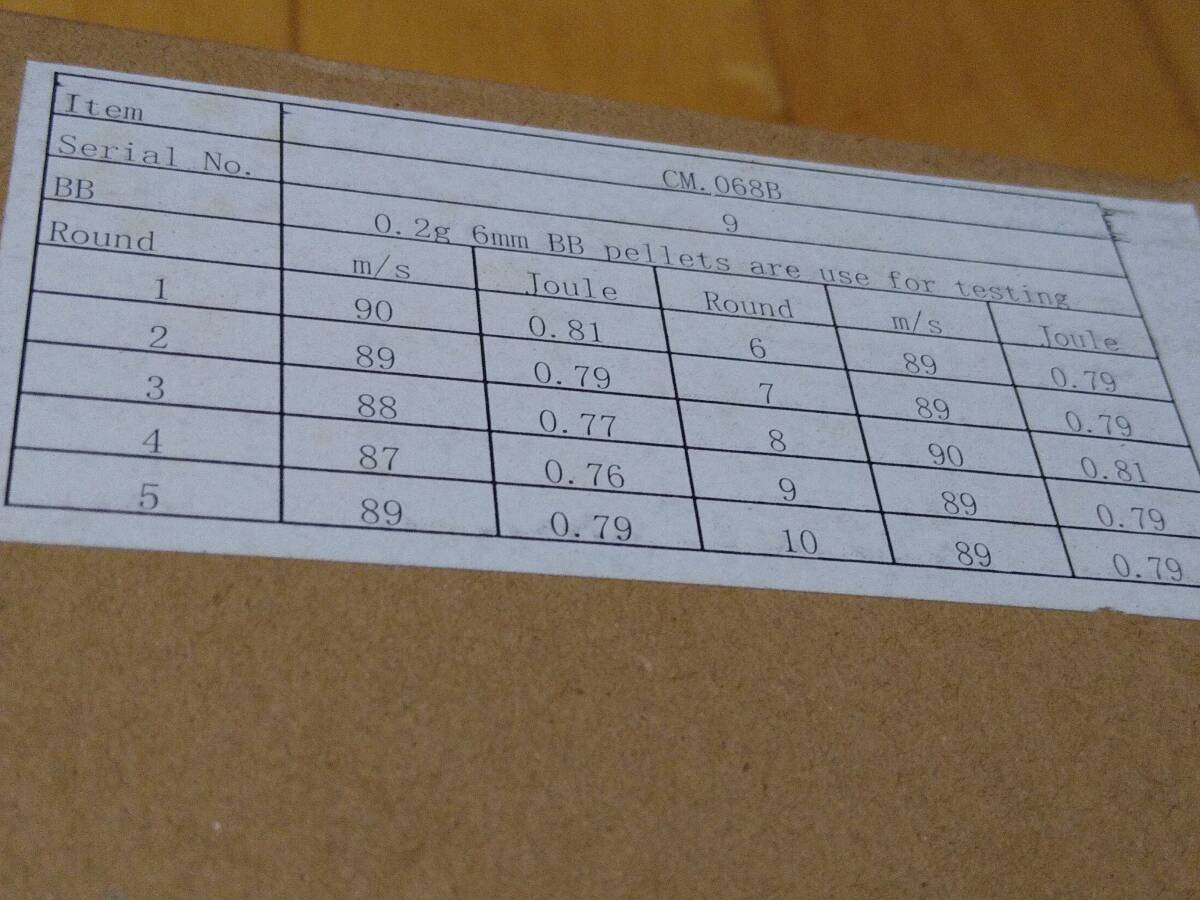 Item CM.068B
Serial No. 9
BB 0.2g 6mm BB pellets are use for testing
Round m/s Joule Round m/s Joule
1 90 0.81 6 89 0.79
2 89 0.79 7 89 0.79
3 88 0.77 8 90 0.81
4 87 0.76 9 89 0.79
5 89 0.79 10 89 0.79